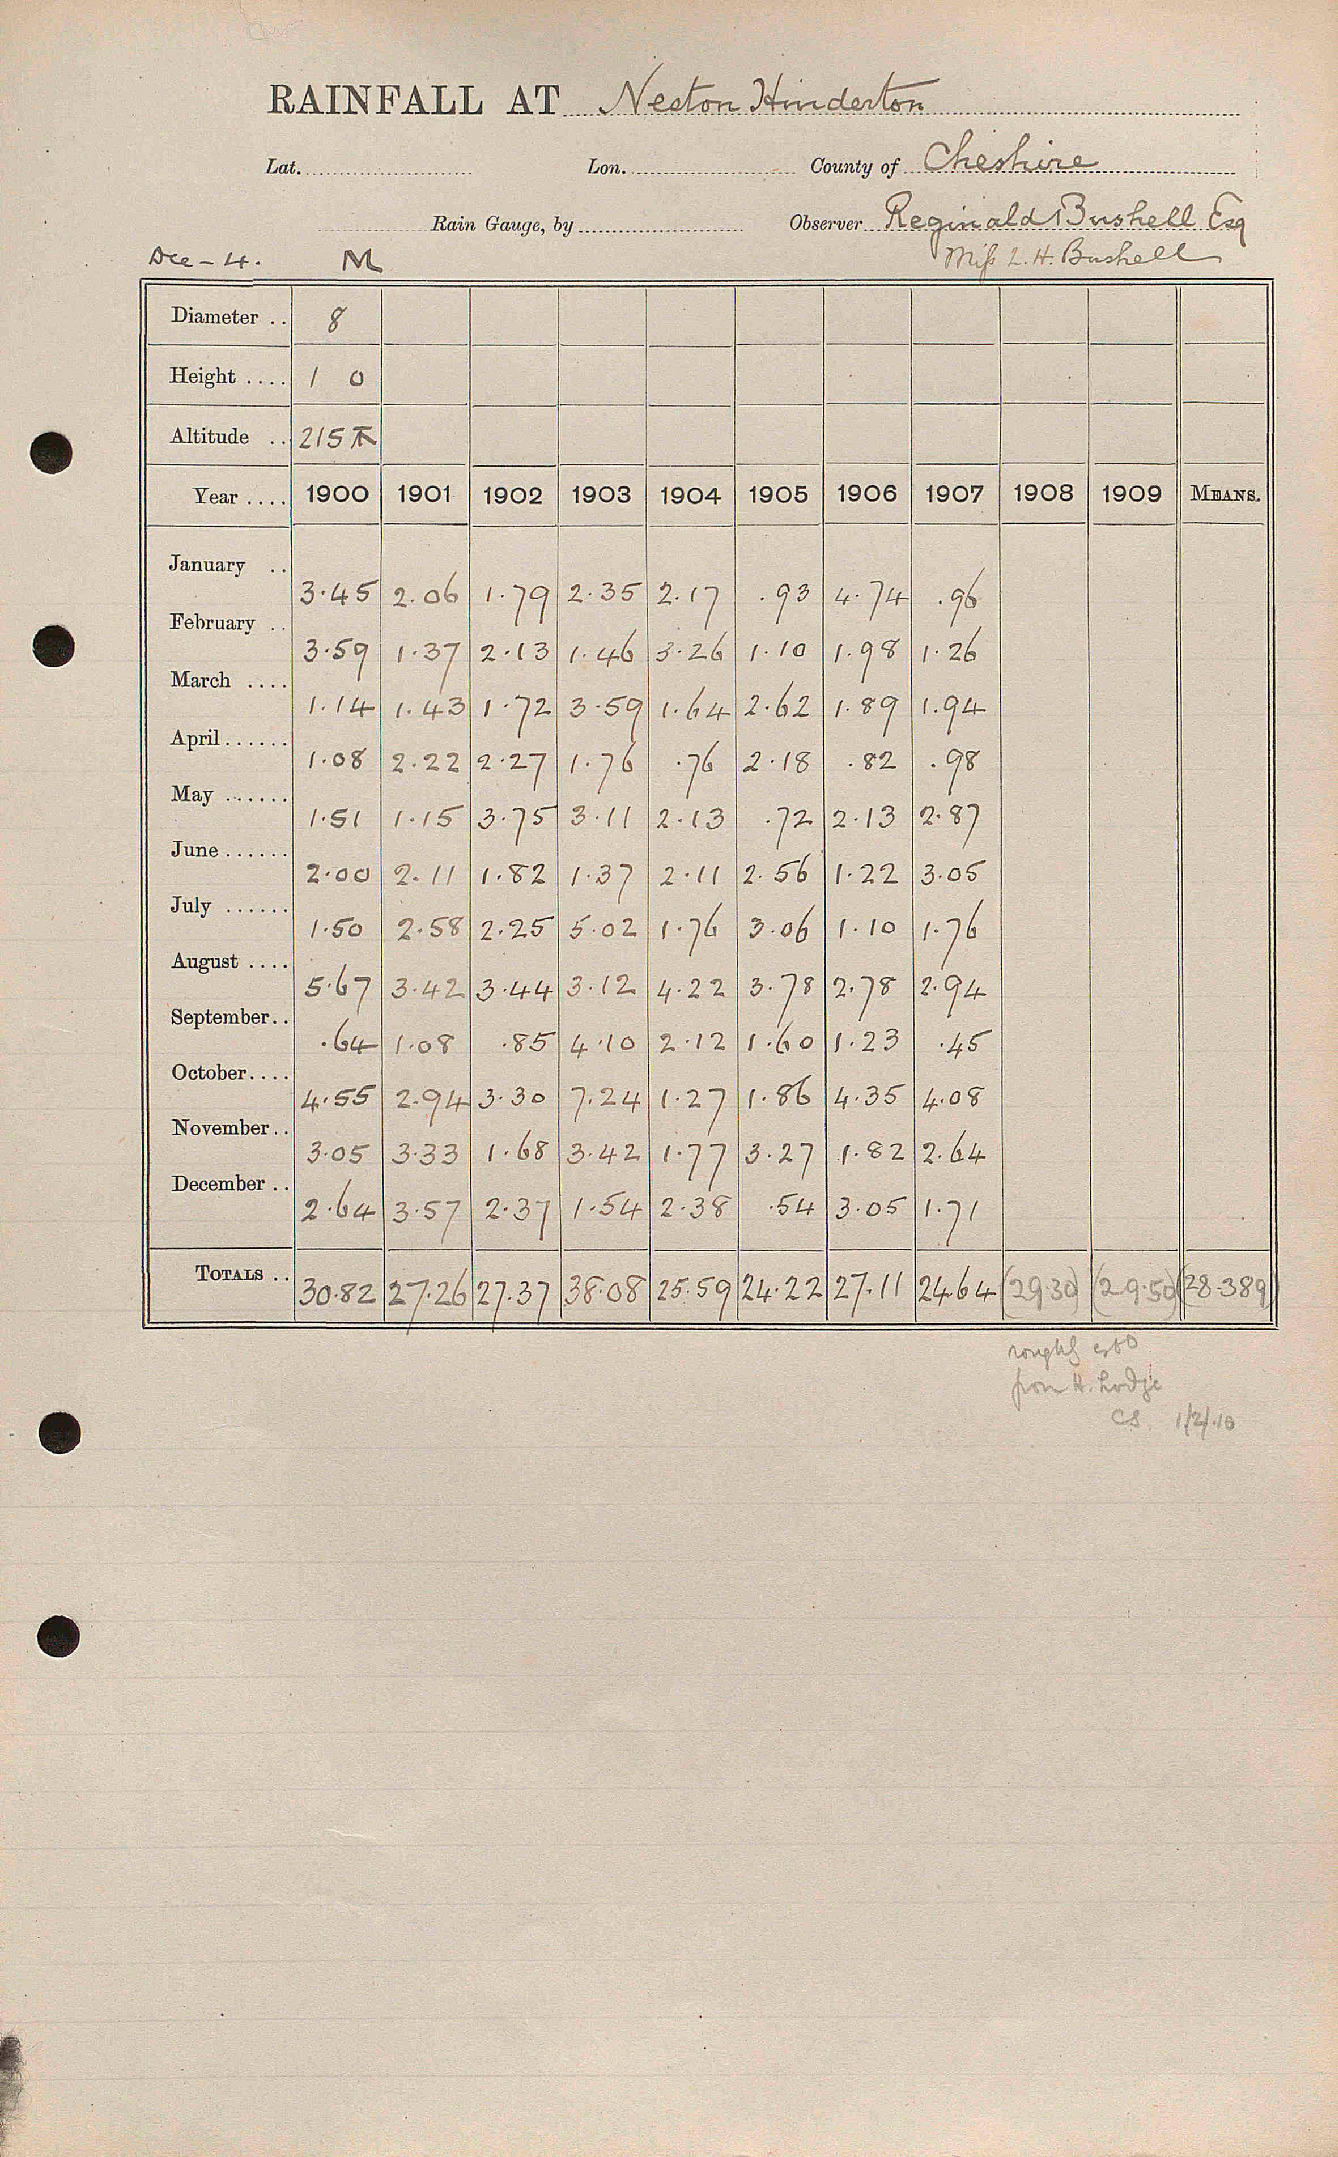 RAINFALL AT Neston Hinderton
Lat. Lon. County of Cheshire
Rain Gauge, by Observer Reginald Bushell Esq
Dec - 4. M Miss L. H. Bushell
Diameter .. 8
Height .... 1 0
Altitude .. 215
Year .... 1900 1901 1902 1903 1904 1905 1906 1907 1908 1909 MEANS.
January .. 3.45 2.06 1.79 2.35 2.17 .93 4.74 .96
February .. 3.59 1.37 2.13 1.46 3.26 1.10 1.98 1.26
March .... 1.14 1.43 1.72 3.59 1.64 2.62 1.89 1.94
April...... 1.08 2.22 2.27 1.76 .76 2.18 .82 .98
May ...... 1.51 1.15 3.75 3.11 2.13 .72 2.13 2.87
June...... 2.00 2.11 1.82 1.37 2.11 2.56 1.22 3.05
July ...... 1.50 2.58 2.25 5.02 1.76 3.06 1.10 1.76
August .... 5.67 3.42 3.44 3.12 4.22 3.78 2.78 2.94
September.. .64 1.08 .85 4.10 2.12 1.60 1.23 .45
October.... 4.55 2.94 3.30 7.24 1.27 1.86 4.35 4.08
November.. 3.05 3.33 1.68 3.42 1.77 3.27 1.82 2.64
December .. 2.64 3.57 2.37 1.54 2.38 .54 3.05 1.71
TOTALS .. 30.82 27.26 27.37 38.08 25.59 24.22 27.11 24.64 (29.30) (29.50) (28.389)
roughly estd
from H. Lodge
CS. 1/2/.10